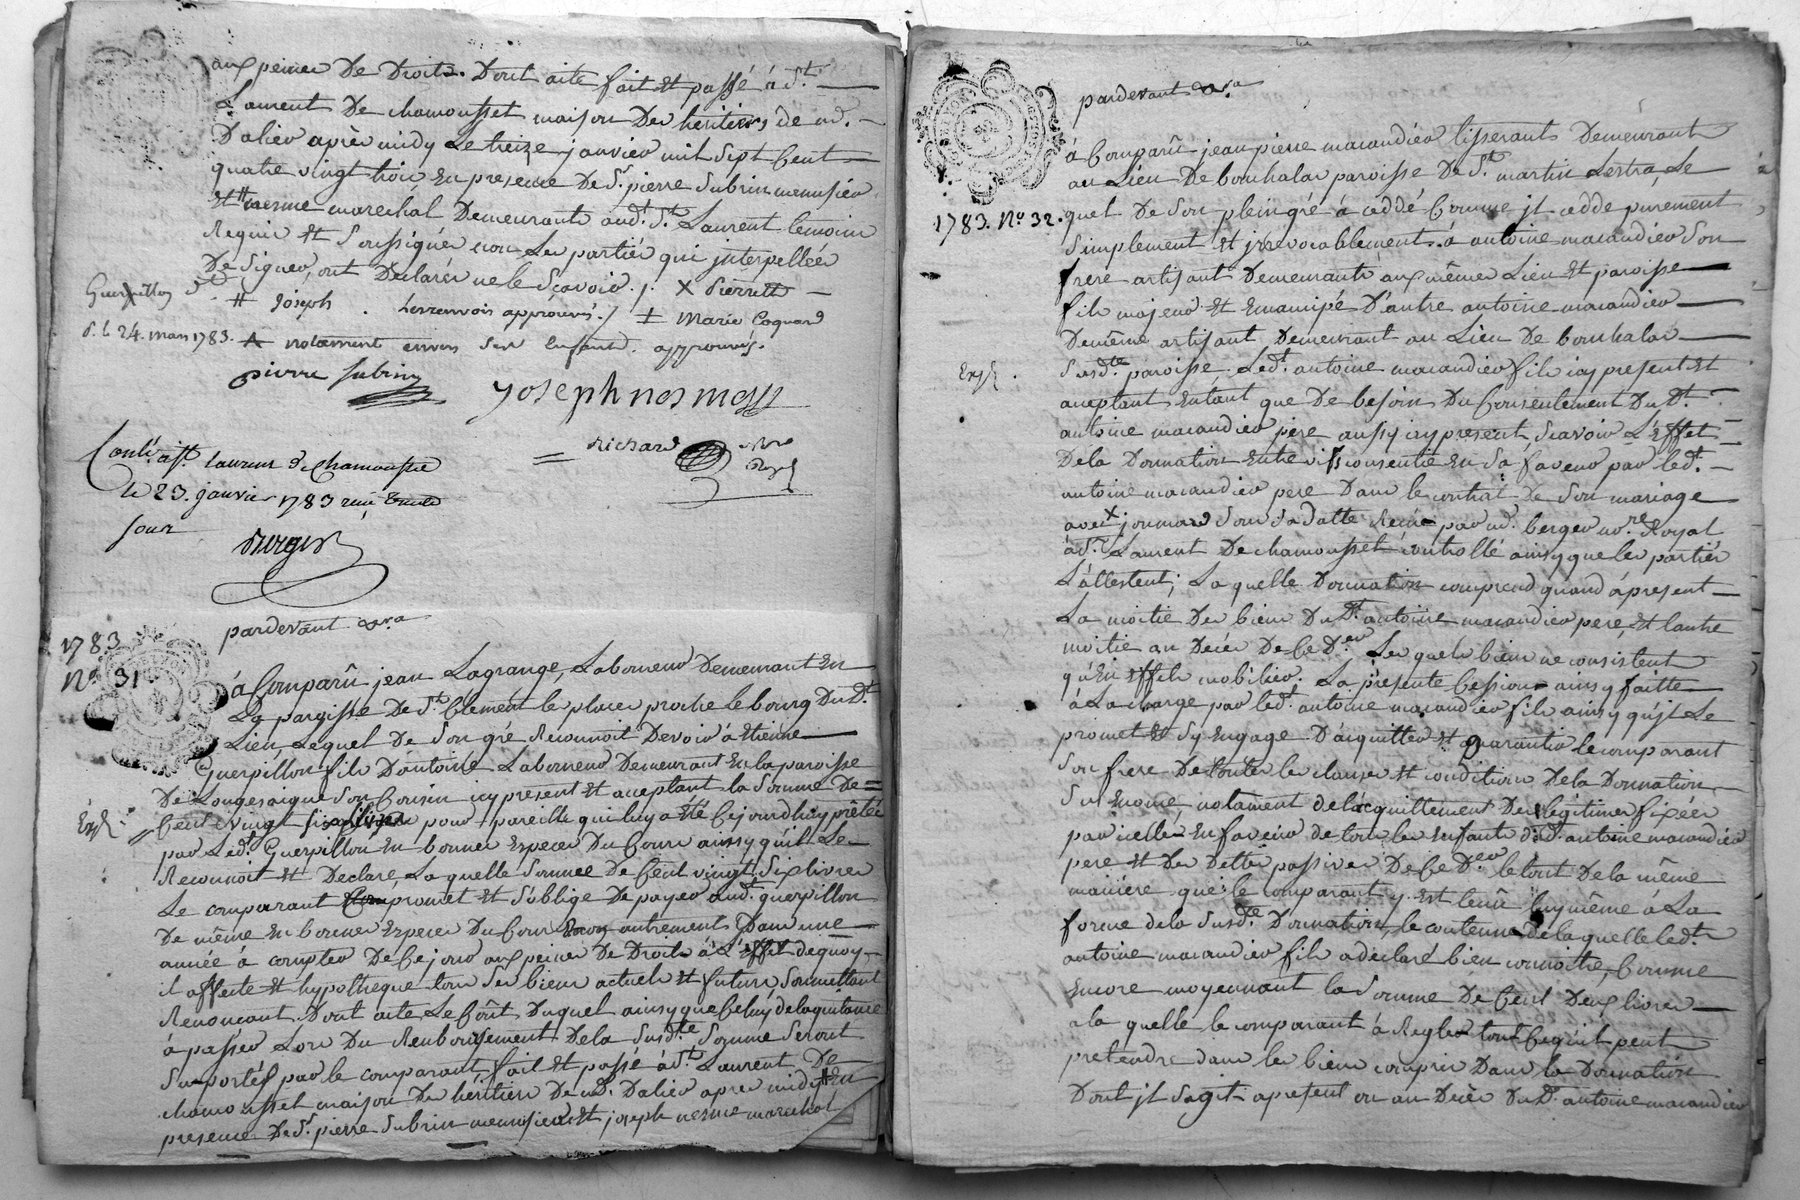 aux peines De Droits. Dont acte fait et passé à St.
Laurent De chamousset maison Des héritiers de md.
Dalier après midy Le treize janvier mil sept Cent
quatre vingt trois En presence De Sr. pierre Subrin menusier
Et # nesme marechal Demeurants audt. St. Laurent temoins
Requis Et Soussignés non Les parties qui jnterpellées
De signer, ont Declarés ne le Sçavoir ./. X Pierrette
# Joseph . Les renvois approuvés ./ ± Marie Coquard
A notament envers Ses Enfants. approuvés.
Guerpillon
d. le 24. mars 1783.
pierre subrin
yoseph nesmess
Richard
nore
Royal
Conlé. à St. Laurent de Chamousset
le 23. janvier 1783 reçu trente
sour
Berger
pardevant &ra
1783
No. 31
à Comparû jean Lagrange, Laboureur Demeurant En
La paroisse De St. Clément les places proche le bourg Dudt.
Lieu, Lequel De Son gré Reconnoit Devoir à Etienne
Guerpillon fils D'antoine Laboureur Demeurant En la paroisse
De Longesaigne Son Cousin icy present Et acceptant la Somme De =
Exp.
= Cent vingt six livres pour pareille qui luy a été Cejourd'huy prêtée
par Ledt. Guerpillon En bonnes Especes Du Cours ainsy qu'il Le
Reconnoit Et Declare, La quelle Somme de Cent vingt Six livres
Le comparant promet et S'oblige De payer audt. guerpillon
De même En bonnes Especes Du Cours non autrement Dans une
année à compter De Ce jour aux peines De Droits à L'Effet de quoy
il affecte Et hypotheque tous Ses biens actuels Et futurs Soumettant
Renonçant. Dont acte Le Coût Duquel ainsy que Celuy de la quittance
à passer Lors Du Renboursement De la Susdte. Somme Seront
Suportés par le comparant, fait Et passé à St. Laurent De
chamousset maison Des héritiers De md. Dalier apres midy # En
presence De Sr. pierre Subrin menusier Et joseph nesme marechal
pardevant &ra
1783. No. 32.
à Comparû jean pierre marandier tisserant Demeurant
au Lieu De bouchala paroisse De St. martin Lestra, Le
quel De Son plein gré à ceddé Comme jl cedde purement
Simplement et jrrevocablement à antoine marandier Son
frere artisant Demeurant aux mêmes Lieu Et paroisse
fils majeur Et Emancipé D'autre antoine marandier
De même artisant Demeurant au Lieu De bouchala
Exp.
Susdte. paroisse Ledt. antoine marandier fils icy present Et
acceptant Entant que De besoin Du Consentement Dudt.
antoine marandier père aussy icy present, Sçavoir L'Effet
De la Donnation Entre vifs consentie En Sa faveur par ledt.
antoine marandier pere Dans le contrat De Son mariage
avec X jonmard Sous Sa Datte Reçu par md. berger nore. Royal
à St. Laurent De chamousset controllé ainsy que les parties
L'attestent; La quelle Donnation comprend quand à present
La moitié Des biens Dudt. antoine marandier pere, Et l'autre
moitié au Décès De Ce Der. Les quels biens ne consistent
qu'En Effets mobiliers. La presente Cession ainsy faitte
à La charge par ledt. antoine marandier fils ainsy qu'jl Le
promet Et S'y Engage D'acquitter Et garantir le comparant
Son frere De toutes les clauses Et conditions De la Donnation
Sus Enoncé, notament de l'acquittement Des légitimes fixées
par icelle, En faveur de tous les Enfants dudt. antoine marandier
pere Et Des Dettes passives De Ce Der. le tout De la même
maniere que le comparant y Est tenû luy même à La
forme de la Susdte. Donnation, le contenu de la quelle ledt.
antoine marandier fils a declaré bien connoitre, Comme
Encore moyennant la Somme De Cent Deux livres
a la quelle le comparant à Réglé tout Ce qu'il peut
pretendre dans les biens compris Dans la Donnation
Dont jl S'agit a present ou au Décès Dudt. antoine marandier